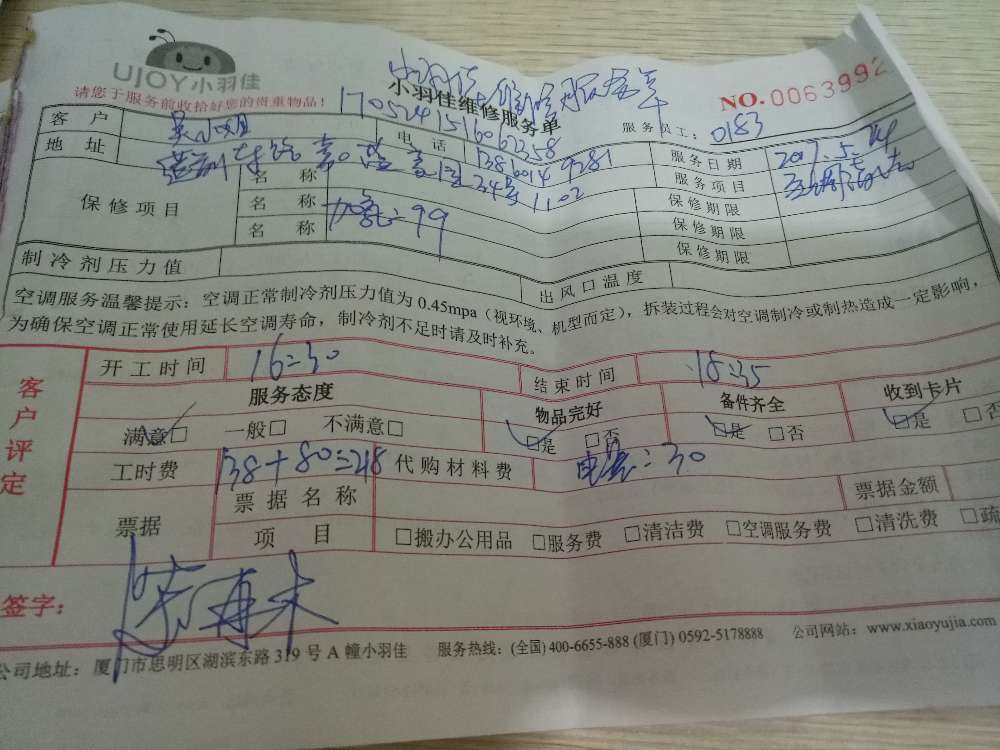 UJOY小羽佳
请您于服务前收拾好您的贵重物品!
小羽佳维修服务单
NO.0063992
1705241516062358
服务员工: 0183
客户
电话 13860149281
服务日期 2017.5.24
地址 34号1102
服务项目
保修项目 名称 保修期限
名称 加氟=99 保修期限
名称 保修期限
制冷剂压力值 出风口温度
空调服务温馨提示:空调正常制冷剂压力值为0.45mpa(视环境、机型而定),拆装过程会对空调制冷或制热造成一定影响,
为确保空调正常使用延长空调寿命,制冷剂不足时请及时补充。
客户评定
开工时间 16:30 结束时间 18:35
服务态度 物品完好 备件齐全 收到卡片
满意□ 一般□ 不满意□ □是 □否 □是 □否 □是 □否
工时费 138+80=218 代购材料费 :30
票据 票据名称 票据金额
项目 □搬办公用品 □服务费 □清洁费 □空调服务费 □清洗费 □疏
签字:
公司地址:厦门市思明区湖滨东路319号A幢小羽佳 服务热线:(全国)400-6655-888(厦门)0592-5178888 公司网站:www.xiaoyujia.com